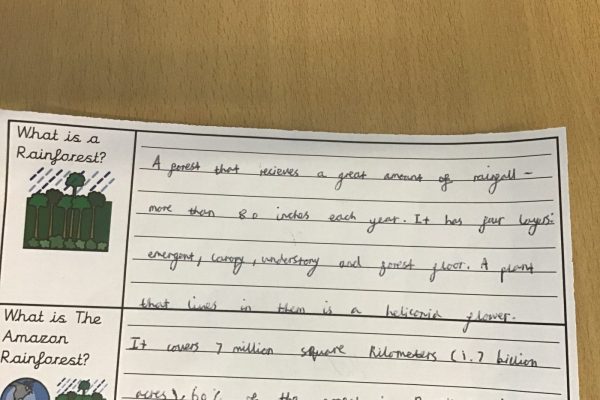 What is a
Rainforest?
A forest that recieves a great amount of raingall -
more than 80 inches each year. It has four layers:
emergent, canopy, understory and forest floor. A plant
that lives in them is a heliconia flower.
What is The
Amazon
Rainforest?
It covers 7 million square Kilometers (1.7 billion
acres), 60% of the